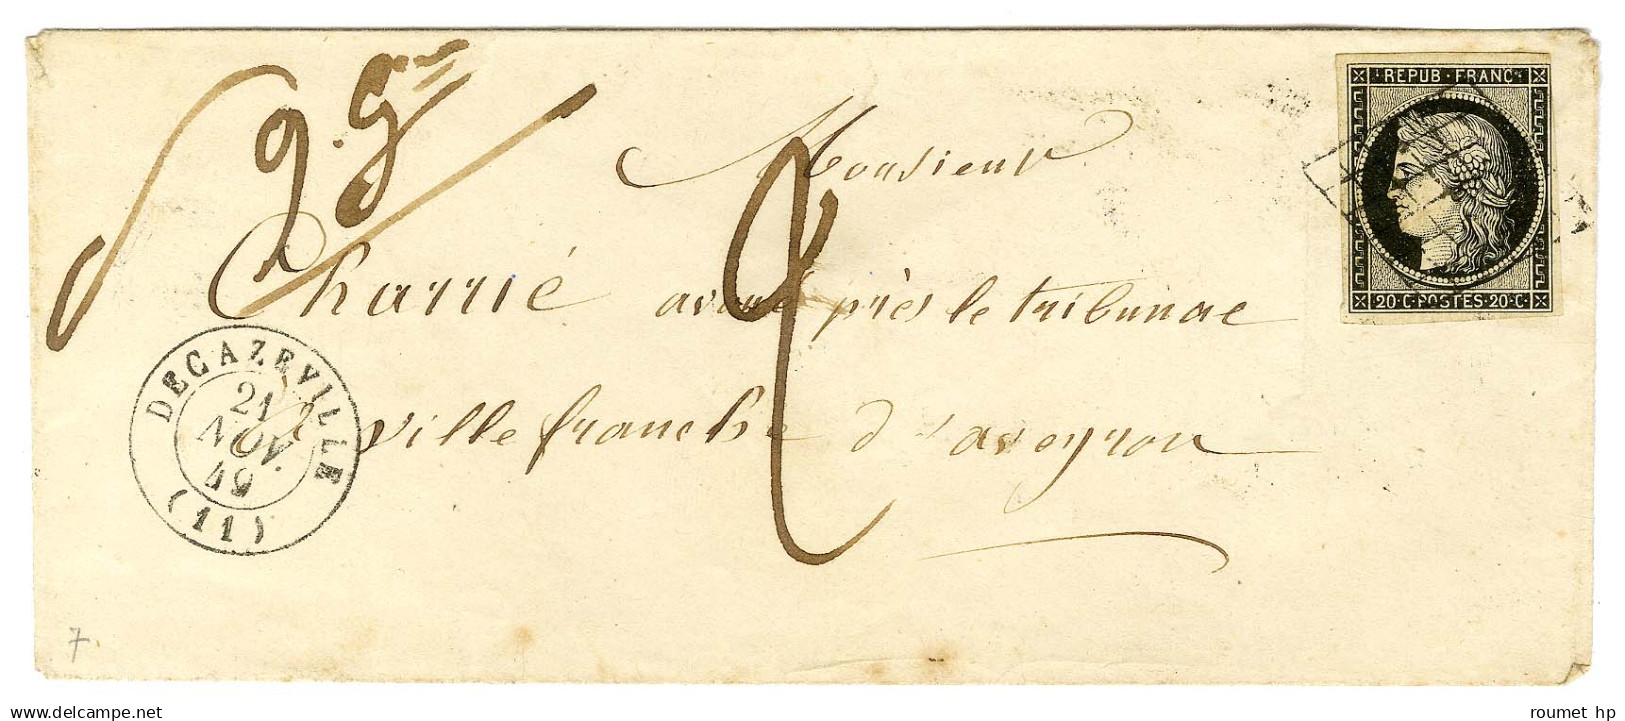 9. gr
REPUB·FRANC
20·C·POSTES·20·C·
Monsieur
Charrié avoué près le tribunal
2
DECAZEVILLE
21
NOV.
49
(11)
villefranche d'aveyron
7
roumet hp